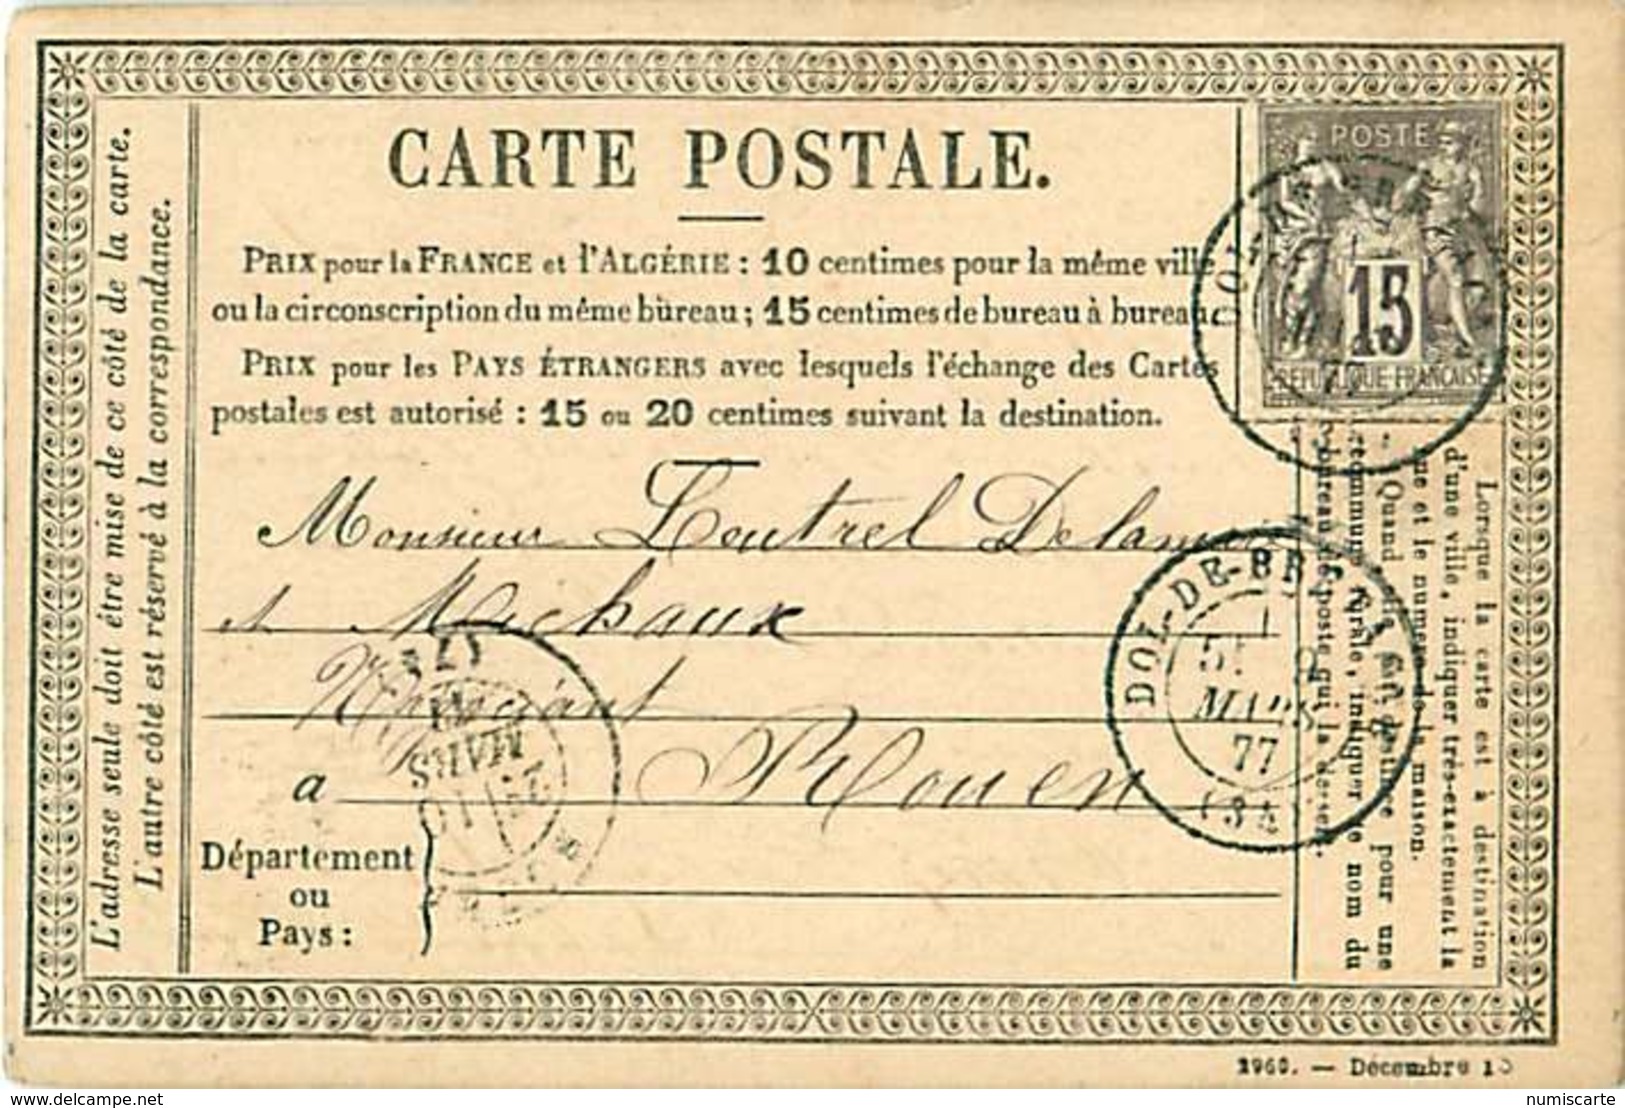 CARTE POSTALE.
PRIX pour la FRANCE et l'ALGÉRIE : 10 centimes pour la même ville
ou la circonscription du même bureau ; 15 centimes de bureau à bureau.
PRIX pour les PAYS ÉTRANGERS avec lesquels l'échange des Cartes
postales est autorisé : 15 ou 20 centimes suivant la destination.
L'adresse seule doit être mise de ce côté de la carte.
L'autre côté est réservé à la correspondance.
POSTE
15
REPUBLIQUE FRANÇAISE
77
Monsieur
et Michaux
Négociant
à Rouen
Département
ou
Pays :
DOL-DE-BRETAGNE
MARS
77
(34)
MARS
(74)
Lorsque la carte est à destination
d'une ville, indiquer très-exactement la
rue et le numéro de la maison.
Quand elle est destinée pour une
commune rurale, indiquer le nom du
bureau de poste qui la dessert.
2960. — Décembre
numiscarte
delcampe.net